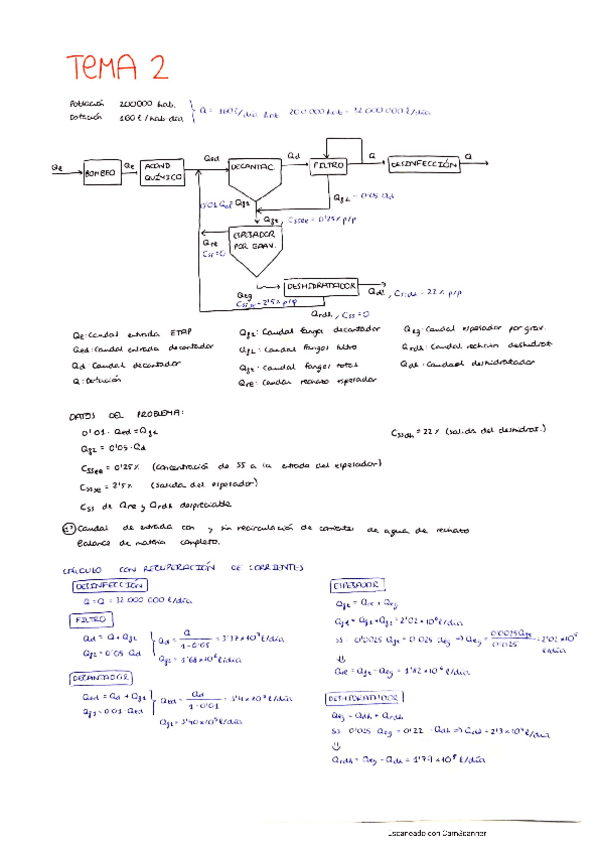 TEMA 2
Población 200000 hab.
Dotación 160 l/hab día
Q = 160 l/día hab · 200 000 hab = 32 000 000 l/día
Qe
BOMBEO
Qe
ACOND QUÍMICO
Qed
DECANTAC.
Qd
FILTRO
Q
DESINFECCIÓN
Q
0'01 Qed = Qf1
Qf2 = 0'05 Qd
Qft , Cssee = 0'25% p/p
ESPESADOR POR GRAV.
Qre
Css=0
Qeg
Cssse = 2'5% p/p
DESHIDRATADOR
Qdh , Cssdh = 22% p/p
Qrdh , Css=0
Qe: Caudal entrada ETAP
Qed: Caudal entrada decantador
Qd: Caudal decantador
Q: Dotación
Qf1: Caudal fangos decantador
Qf2: Caudal fangos filtro
Qft: Caudal fangos total
Qre: Caudal rechazo espesador
Qeg: Caudal espesador por grav.
Qrdh: Caudal rechazo deshidrat.
Qdh: Caudal deshidratador
DATOS DEL PROBLEMA:
0'01 · Qed = Qf1
Qf2 = 0'05 · Qd
Cssee = 0'25% (concentración de SS a la entrada del espesador)
Cssse = 2'5% (salida del espesador)
Css de Qre y Qrdh despreciable
Cssdh = 22% (salida del deshidrat.)
1º Caudal de entrada con y sin recirculación de corrientes de agua de rechazo
Balance de materia completo.
CÁLCULO CON RECUPERACIÓN DE CORRIENTES
DESINFECCIÓN
Q = Q = 32 000 000 l/día
FILTRO
Qd = Q + Qf2
Qf2 = 0'05 Qd
Qd = Q / 1-0'05 = 3'37×10⁷ l/día
Qf2 = 1'68×10⁶ l/día
DECANTADOR
Qed = Qd + Qf1
Qf1 = 0'01 · Qed
Qed = Qd / 1-0'01 = 3'4×10⁷ l/día
Qf1 = 3'40×10⁵ l/día
ESPESADOR
Qft = Qre + Qeg
Qft = Qf1 + Qf2 = 2'02×10⁶ l/día
SS 0'0025 Qft = 0'025 Qeg ⇒ Qeg = 0'0025 Qft / 0'025 = 2'02×10⁵ l/día
Qre = Qft - Qeg = 1'82×10⁶ l/día
DESHIDRATADOR
Qeg = Qdh + Qrdh
SS 0'025 · Qeg = 0'22 · Qdh ⇒ Qdh = 2'3×10⁴ l/día
Qrdh = Qeg - Qdh = 1'79×10⁵ l/día
Escaneado con CamScanner